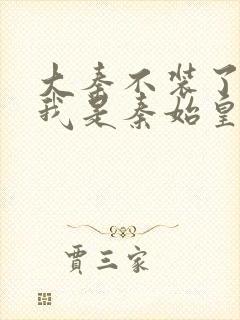 大秦不装了
我是秦始皇
贾三家